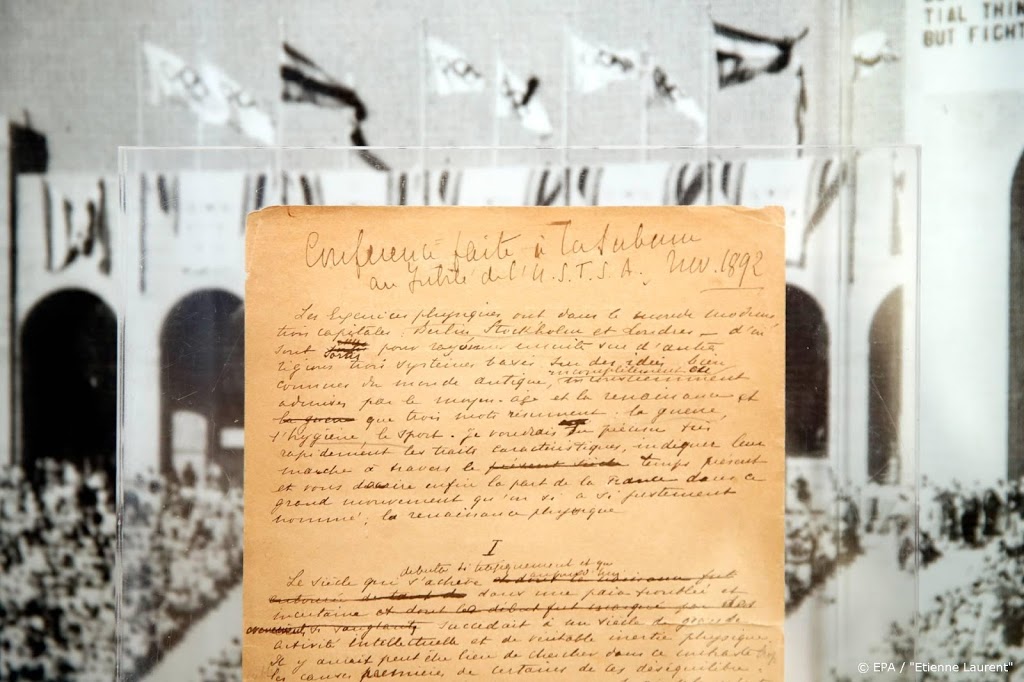 TIAL THIN
BUT FIGHT
Conférence faite à la Sorbonne
au Jubilé de l'U.S.F.S.A. Nov. 1892
Les Exercices physiques ont dans le monde moderne
trois capitales, Berlin Stockholm et Londres - d'où
sont pour rayonner ensuite
trois systèmes basés sur des idées bien
connues du monde antique, incomplètement et
admises par le moyen-âge et la renaissance et
la guerre que trois mots résument: la guerre,
l'hygiène, le sport. Je voudrais en préciser
rapidement les traits caractéristiques, indiquer leur
marche à travers le présent siècle temps présent
et vous décrire enfin la part de la France dans ce
grand mouvement qu'on a si justement
nommé; la renaissance physique
I
débuta
Le siècle qui s'achève
dans une paix troublée et
incertaine et dont le début fut marqué par des
si sanglants succédait à un siècle de grande
activité intellectuelle et de véritable inertie physique.
Il y aurait peut être lieu de chercher dans ce contraste
les causes premières de certains de ces déséquilibre.
© EPA / "Etienne Laurent"